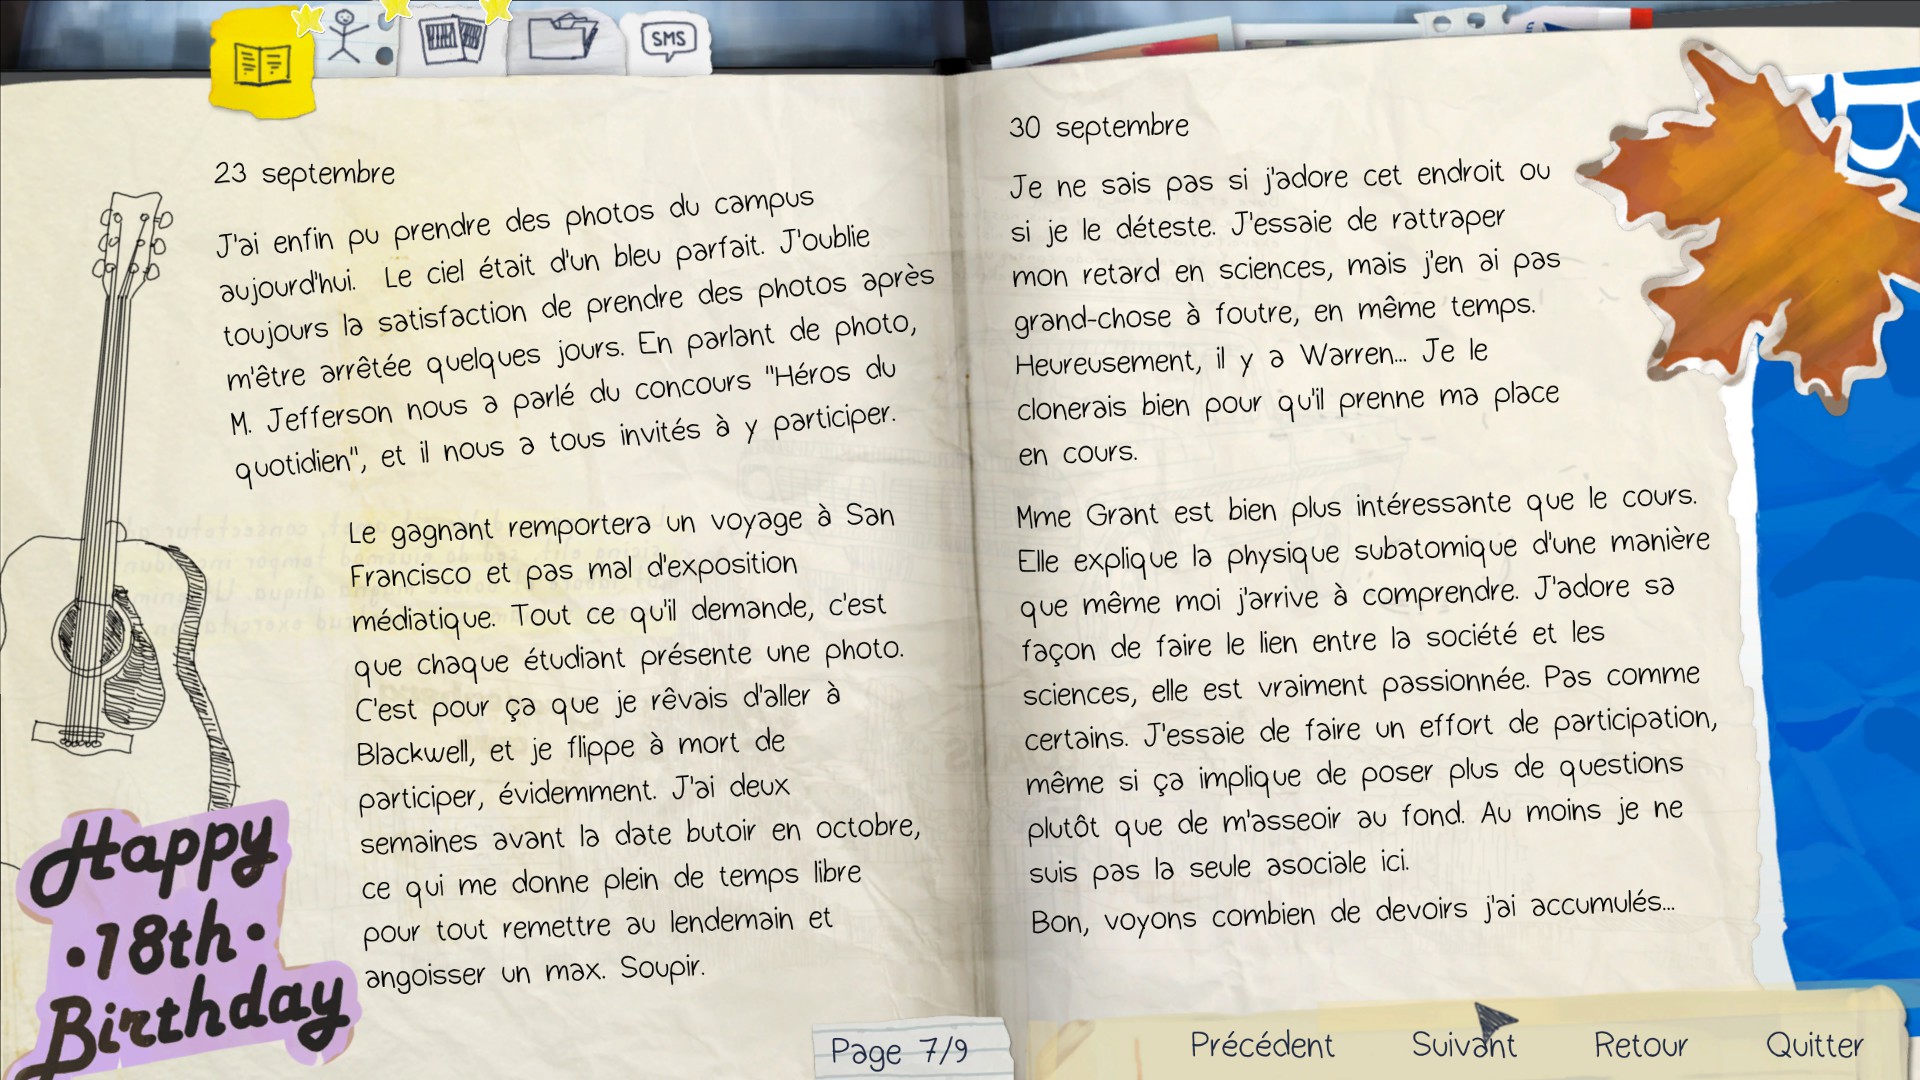 SMS
23 septembre
J'ai enfin pu prendre des photos du campus
aujourd'hui. Le ciel était d'un bleu parfait. J'oublie
toujours la satisfaction de prendre des photos après
m'être arrêtée quelques jours. En parlant de photo,
M. Jefferson nous a parlé du concours "Héros du
quotidien", et il nous a tous invités à y participer.
Le gagnant remportera un voyage à San
Francisco et pas mal d'exposition
médiatique. Tout ce qu'il demande, c'est
que chaque étudiant présente une photo.
C'est pour ça que je rêvais d'aller à
Blackwell, et je flippe à mort de
participer, évidemment. J'ai deux
semaines avant la date butoir en octobre,
ce qui me donne plein de temps libre
pour tout remettre au lendemain et
angoisser un max. Soupir.
Happy
•18th•
Birthday
30 septembre
Je ne sais pas si j'adore cet endroit ou
si je le déteste. J'essaie de rattraper
mon retard en sciences, mais j'en ai pas
grand-chose à foutre, en même temps.
Heureusement, il y a Warren... Je le
clonerais bien pour qu'il prenne ma place
en cours.
Mme Grant est bien plus intéressante que le cours.
Elle explique la physique subatomique d'une manière
que même moi j'arrive à comprendre. J'adore sa
façon de faire le lien entre la société et les
sciences, elle est vraiment passionnée. Pas comme
certains. J'essaie de faire un effort de participation,
même si ça implique de poser plus de questions
plutôt que de m'asseoir au fond. Au moins je ne
suis pas la seule asociale ici.
Bon, voyons combien de devoirs j'ai accumulés...
B
Page 7/9
Précédent Suivant Retour Quitter